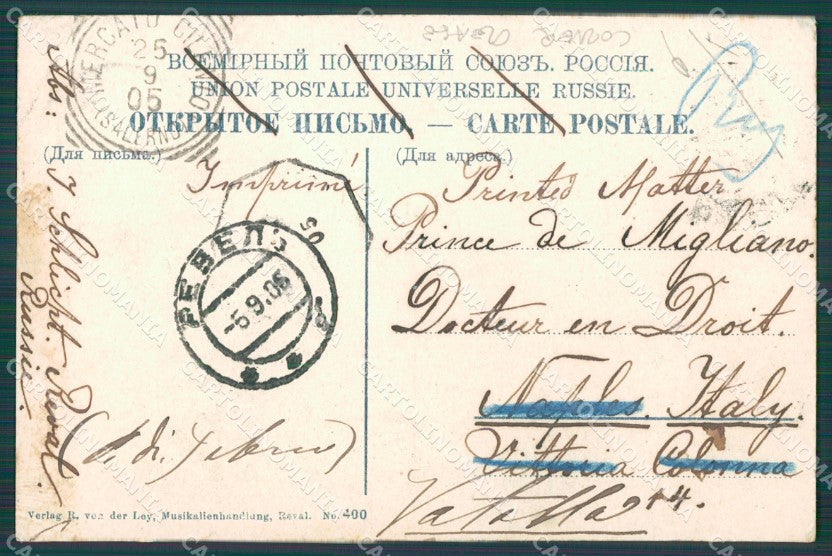 MERCATO CILENTO
25
9
05
(SALERNO)
ВСЕМІРНЫЙ ПОЧТОВЫЙ СОЮЗЪ. РОССІЯ.
UNION POSTALE UNIVERSELLE RUSSIE.
ОТКРЫТОЕ ПИСЬМО. — CARTE POSTALE.
(Для письма.)
(Для адреса.)
Imprimé
Printed Matter
Prince de Migliano.
Docteur en Droit.
Naples. Italy.
Vittoria Colonna
Vatolla
Abs: J. Schlicht. Reval.
Russie.
РЕВЕЛЬ
-5.9.05
Verlag R. von der Ley, Musikalienhandlung, Reval. No. 400
CARTOLINOMANIA